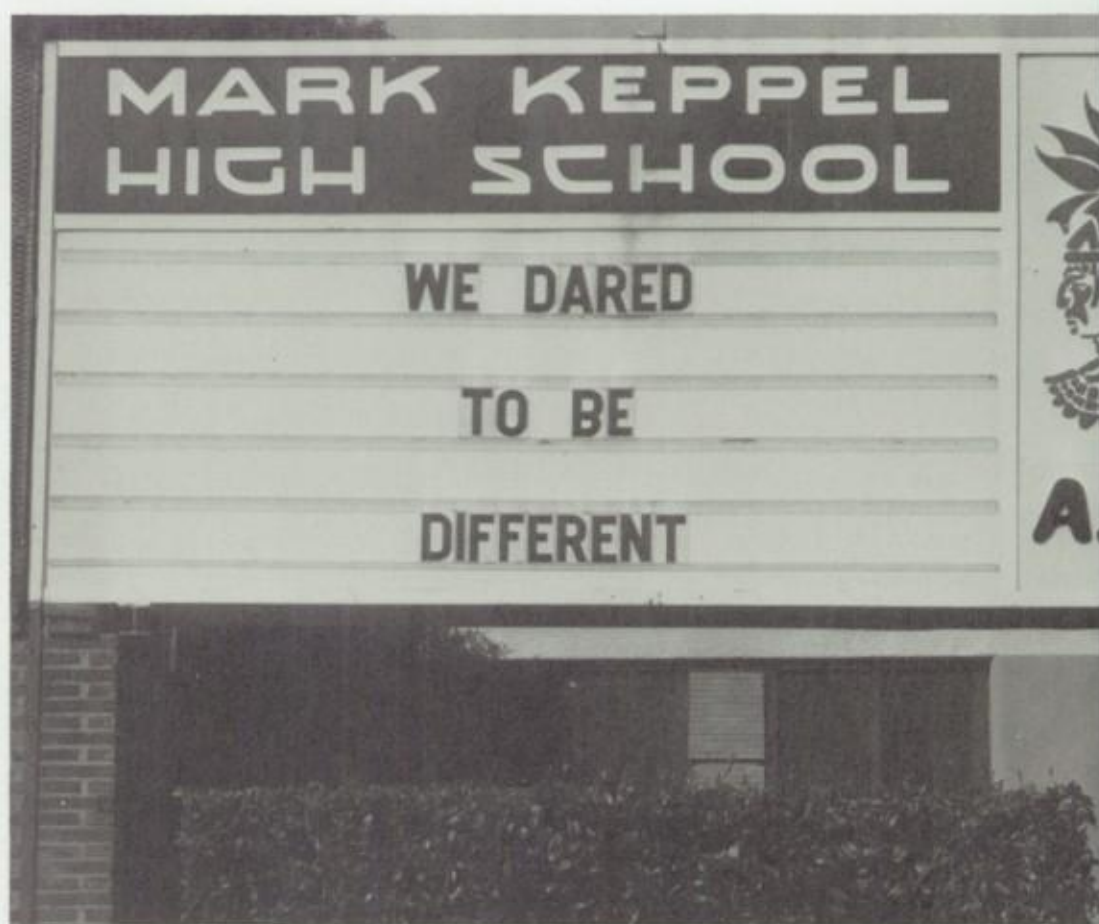 MARK KEPPEL
HIGH SCHOOL
WE DARED
TO BE
DIFFERENT
A.